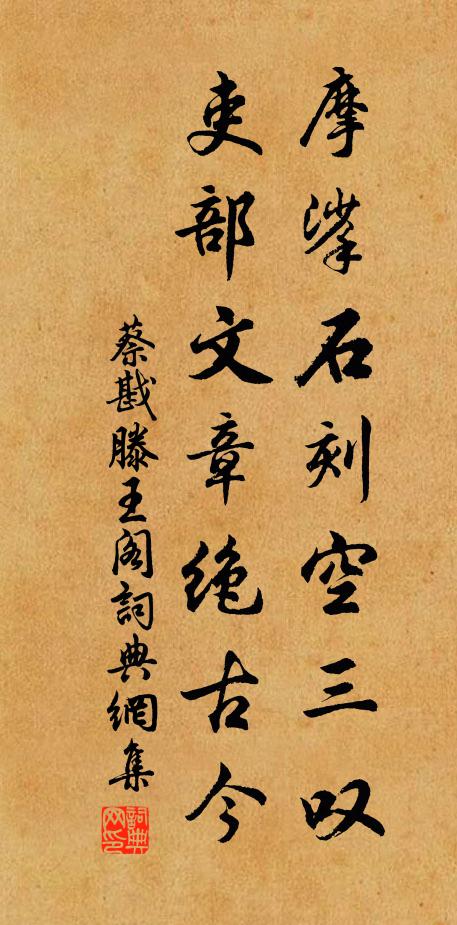 摩挲石刻空三叹
吏部文章绝古今
蔡戡滕王阁詞典網集
詞典网印